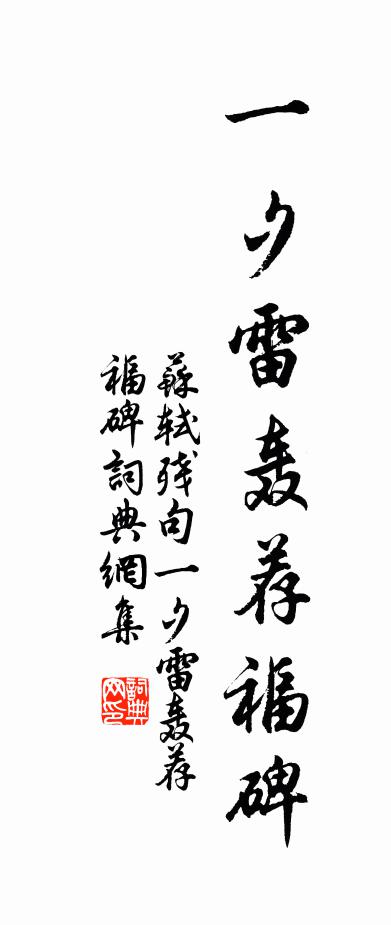 一夕雷轰荐福碑
蘇轼残句一夕雷轰荐
福碑詞典網集
詞典网印